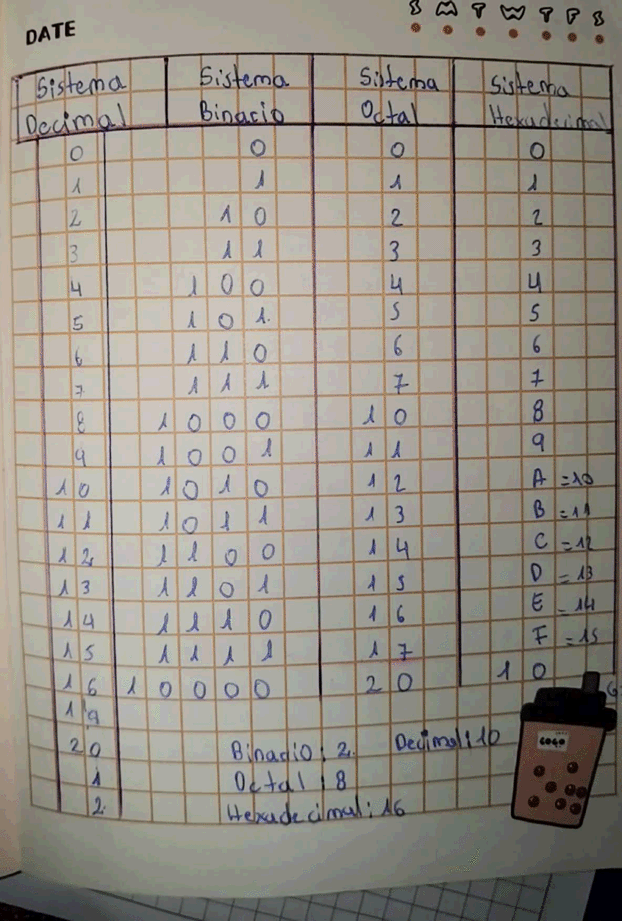 S M T W T F S
DATE
Sistema Decimal Sistema Binario Sistema Octal Sistema Hexadecimal
0 0 0 0
1 1 1 1
2 10 2 2
3 11 3 3
4 100 4 4
5 101 5 5
6 110 6 6
7 111 7 7
8 1000 10 8
9 1001 11 9
10 1010 12 A =10
11 1011 13 B =11
12 1100 14 C =12
13 1101 15 D =13
14 1110 16 E =14
15 1111 17 F =15
16 10000 20 10
19
20 Binario: 2. Decimal: 10
1 Octal: 8
2. Hexadecimal: 16